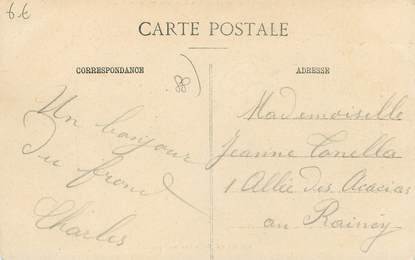 6 €
CARTE POSTALE
CORRESPONDANCE
ADRESSE
88)
Un bonjour
Du front
Charles
Mademoiselle
Jeanne Tonella
1 Allée des Acacias
au Raincy